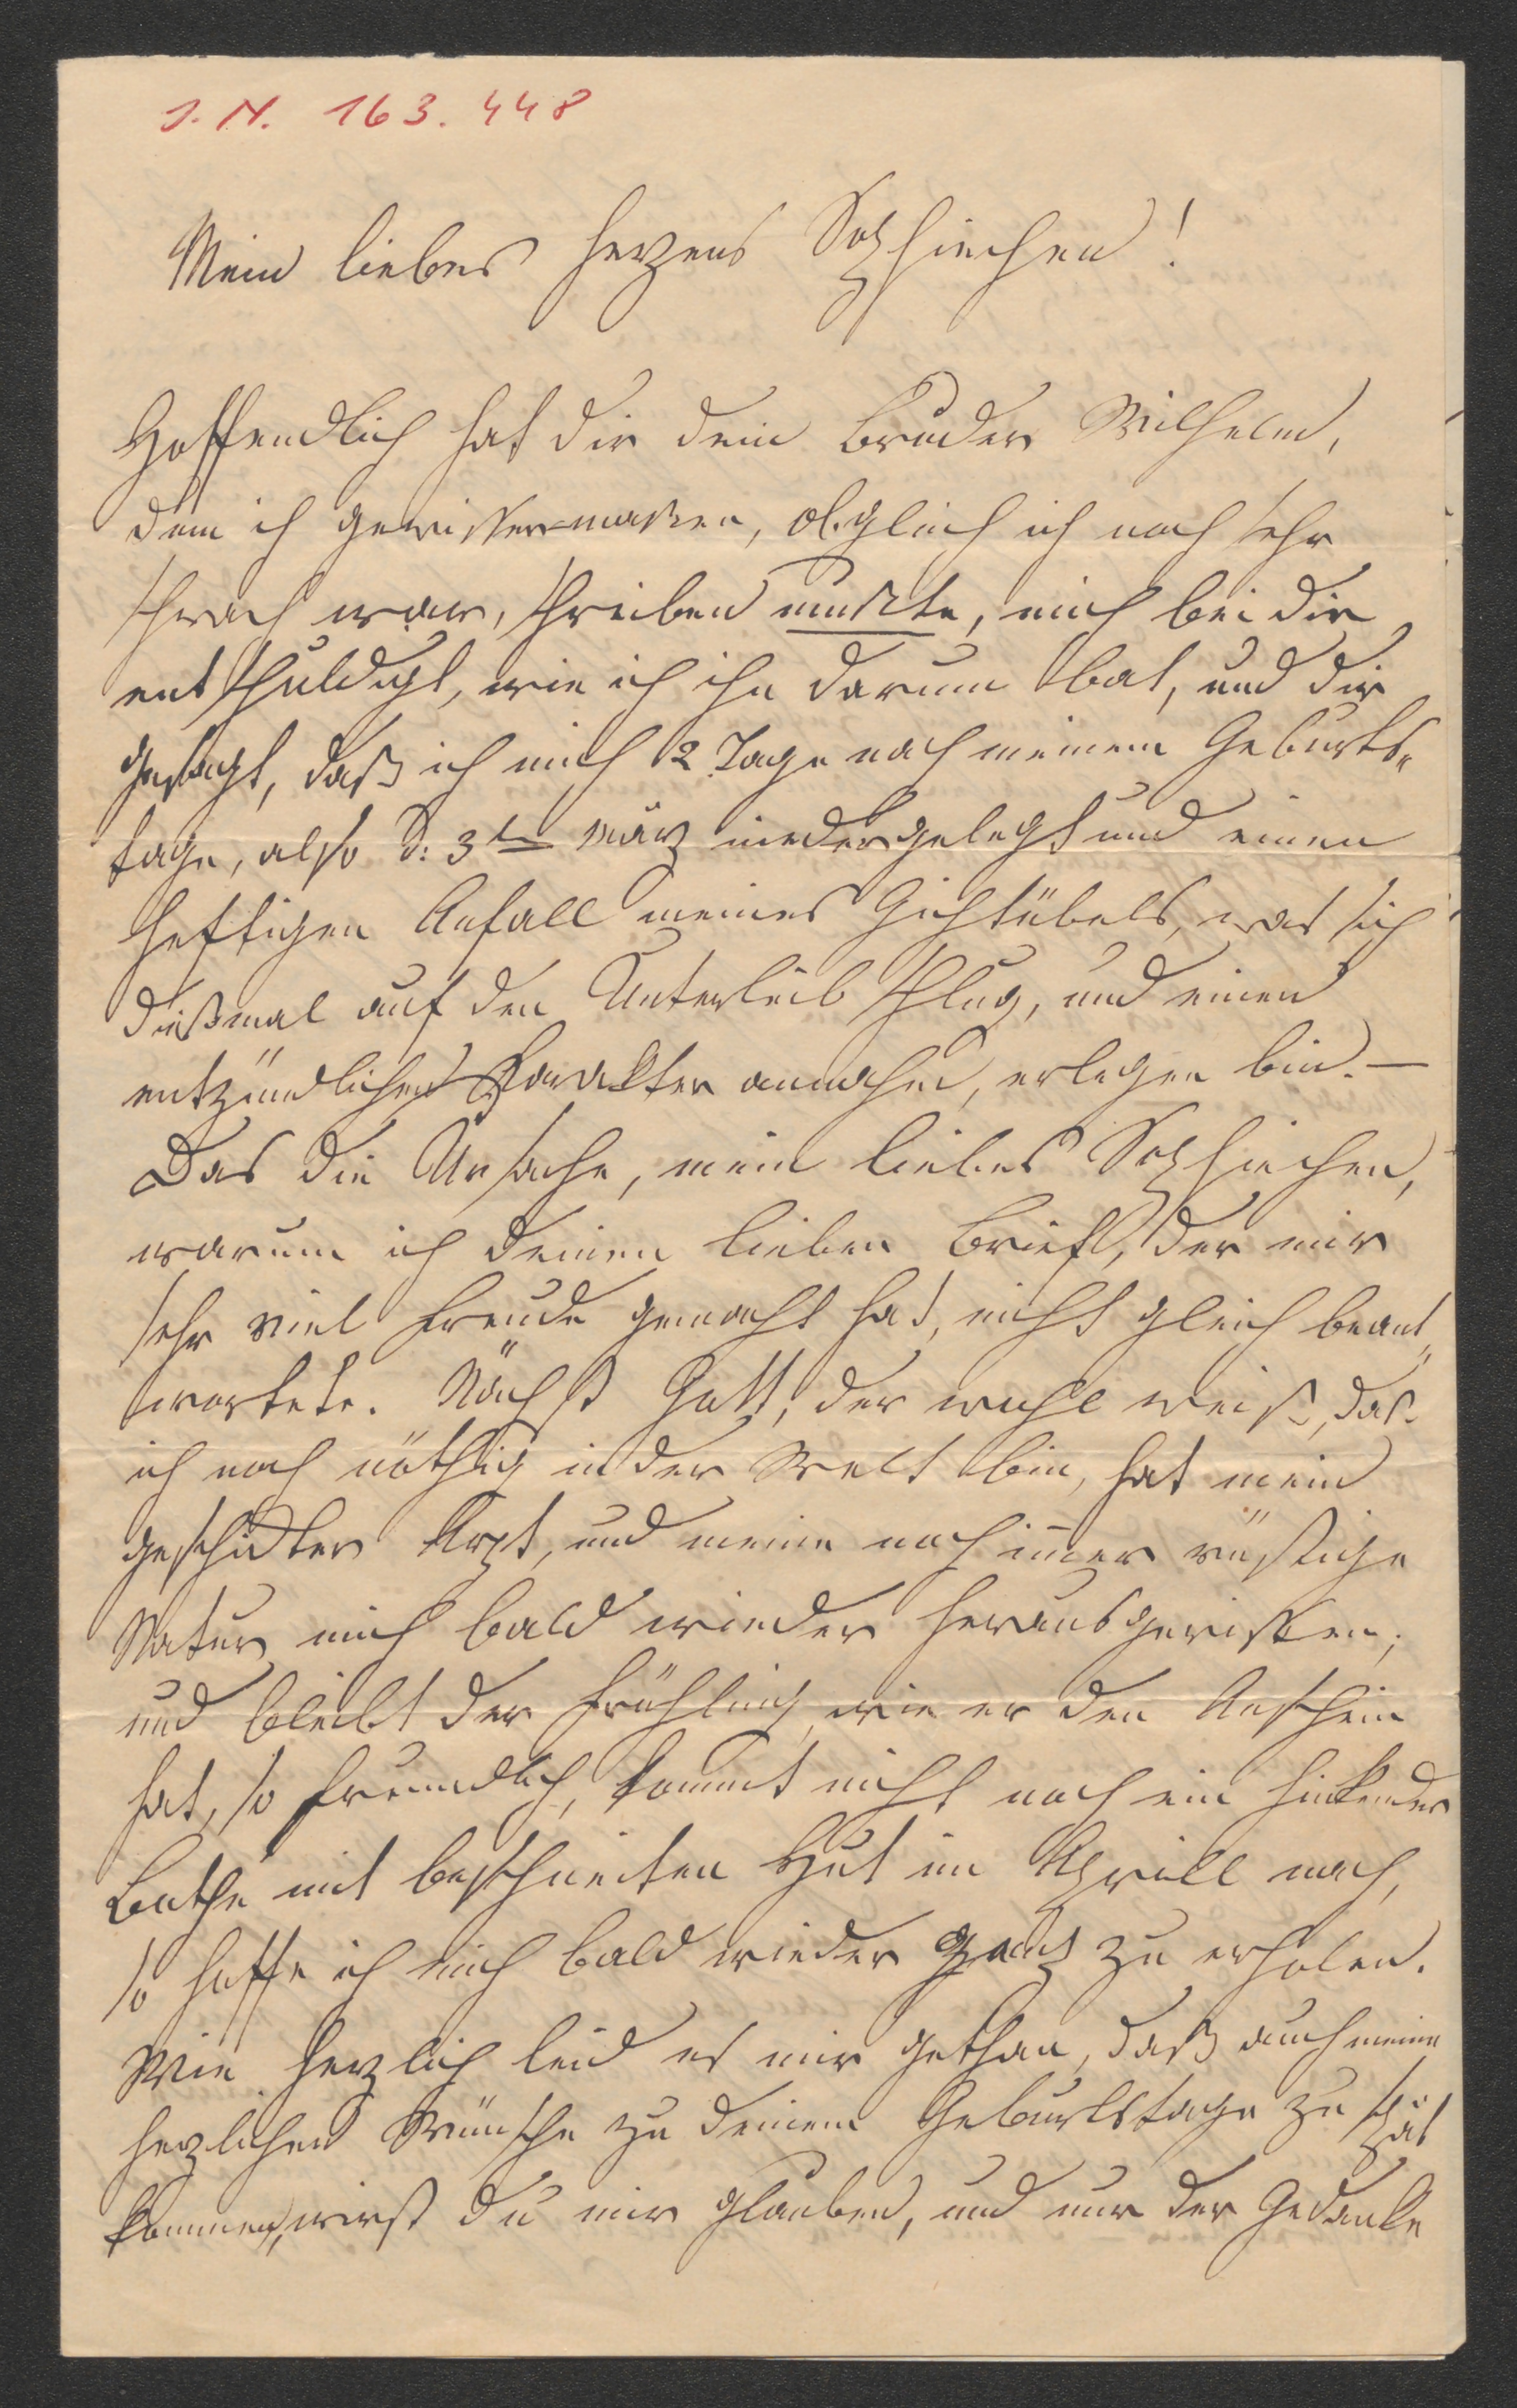 J. N. 163.448
Mein liebes Herzens Sophiechen!
Hoffendlich hat dir dein Bruder Wilhelm,
dem ich gewissermaßen, obgleich ich noch sehr
schwach war, schreiben mußte, mich bei dir
entschuldigt, wie ich ihn darum bat, und dir
gesagt, daß ich mich 2 Tage nach meinem Geburts-
tage, also d: 3ten März niedergelegt und einen
heftigen Anfall meines Gichtübels, was sich
dießmal auf den Unterleib schlug, und einen
entzündlichen Karakter annahm, erlegen bin. —
Das die Ursache, mein liebes Sophiechen,
warum ich deinen lieben Brief, der mir
sehr viel Freude gemacht hat, nicht gleich beant„
wortete. Nächst Gott, der wohl weiß, daß
ich noch nöthig in der Welt bin, hat mein
geschickter Arzt, und meine noch im̄er rüstige
Natur mich bald wieder herausgerissen;
und bleibt der Frühling, wie er den Anschein
hat, so freundlich, kommt nicht noch ein hinkender
Bothe mit beschneiten Hut im Aprill nach,
so hoffe ich mich bald wieder ganz zu erholen.
Wie herzlich leid es mir gethan, daß auch meine
herzlichen Wünsche zu deinem Geburtstage zu spät
kommen, wirst du mir glauben, und nur der Gedanke